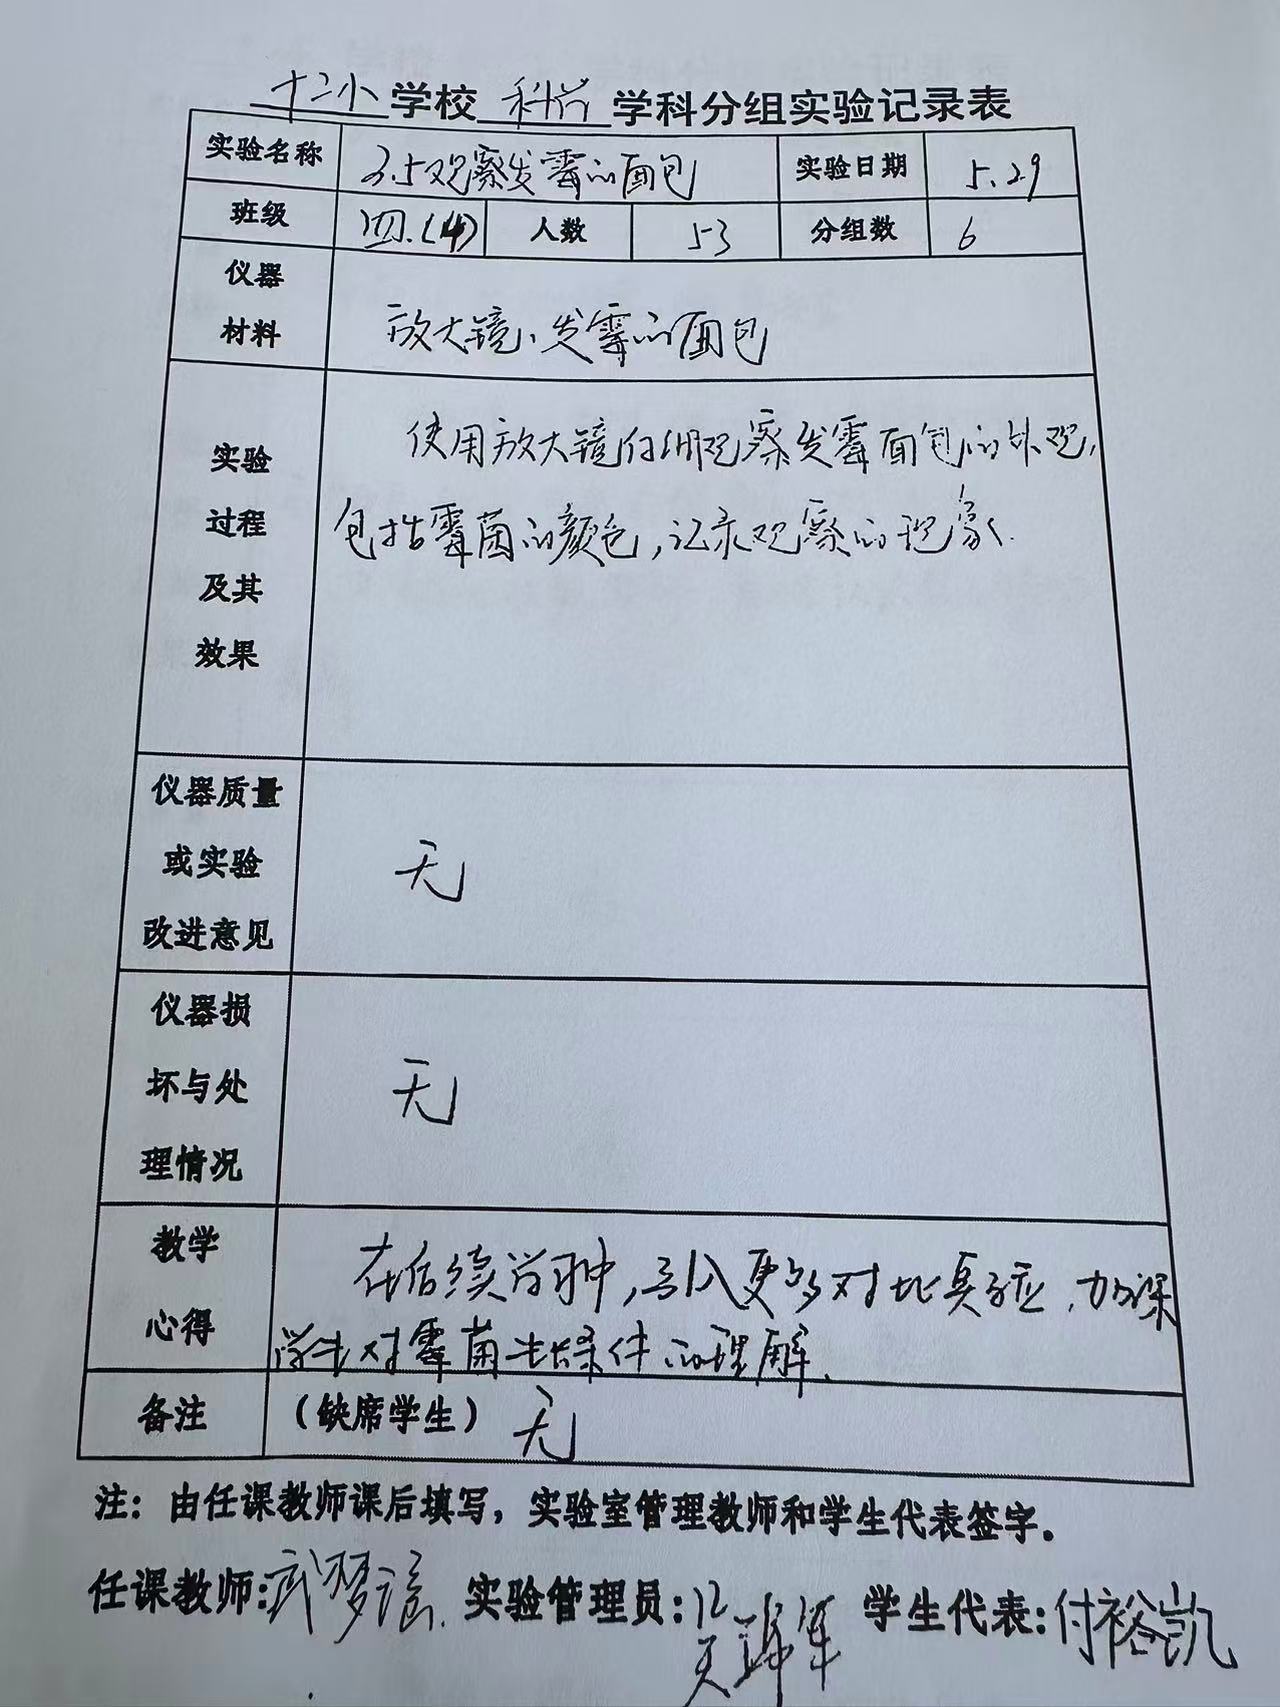 十二小学校 科学 学科分组实验记录表
实验名称 2.5观察发霉的面包 实验日期 5.29
班级 四.(4) 人数 53 分组数 6
仪器
材料
放大镜、发霉的面包
实验
过程
及其
效果
使用放大镜仔细观察发霉面包的外观,
包括霉菌的颜色,记录观察的现象.
仪器质量
或实验
改进意见
无
仪器损
坏与处
理情况
无
教学
心得
在后续学习中,引入更多对比实验,加深
学生对霉菌生长条件的理解.
备注 (缺席学生) 无
注：由任课教师课后填写，实验室管理教师和学生代表签字。
任课教师:武梦瑶 实验管理员: 学生代表:付裕凯